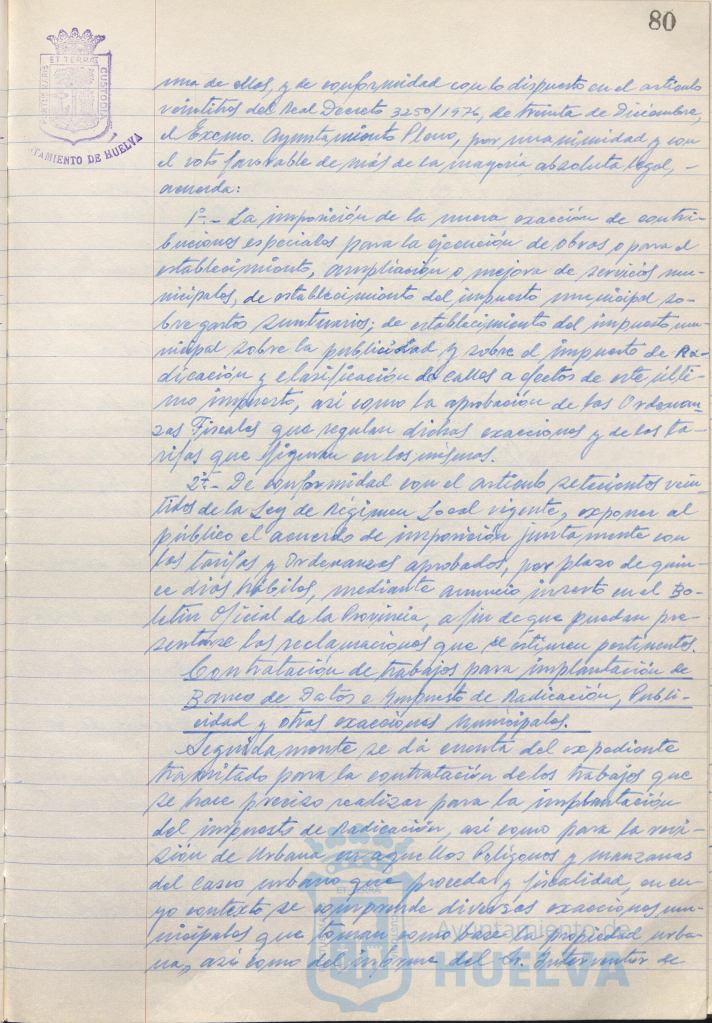 80
PORTUS MARIS ET TERRAE CUSTODIA
AYUNTAMIENTO DE HUELVA
una de ellas, y de conformidad con lo dispuesto en el artículo
veintitres del Real Decreto 3250/1976, de treinta de Diciembre,
el Excmo. Ayuntamiento Pleno, por unanimidad y con
el voto favorable de más de la mayoría absoluta legal, -
acuerda:
1º.- La imposición de la nueva exacción de contri-
buciones especiales para la ejecución de obras o para el
establecimiento, ampliación o mejora de servicios mu-
nicipales, de establecimiento del impuesto municipal so-
bre gastos suntuarios; de establecimiento del impuesto mu-
nicipal sobre la publicidad y sobre el impuesto de Ra-
dicación y clasificación de calles a efectos de este últi-
mo impuesto, así como la aprobación de las Ordenan-
zas Fiscales que regulan dichas exacciones y de las ta-
rifas que figuran en las mismas.
2º.- De conformidad con el artículo setecientos vein-
tidos de la Ley de Régimen Local vigente, exponer al
público el acuerdo de imposición juntamente con
las tarifas y Ordenanzas aprobadas, por plazo de quin-
ce días hábiles, mediante anuncio inserto en el Bo-
letín Oficial de la Provincia, a fin de que puedan pre-
sentarse las reclamaciones que se estimen pertinentes.
Contratación de trabajos para implantación de
Banco de Datos e Impuesto de Radicación, Publi-
cidad y otras exacciones municipales.
Seguidamente se dá cuenta del expediente
tramitado para la contratación de los trabajos que
se hace preciso realizar para la implantación
del impuesto de Radicación, así como para la revi-
sión de Urbana en aquellos Polígonos y manzanas
del casco urbano que proceda y fiscalidad, en cu-
yo contexto se comprende diversas exacciones mu-
nicipales que toman como base la propiedad urba-
na, así como del informe del Sr. Interventor de
Ayuntamiento de
HUELVA